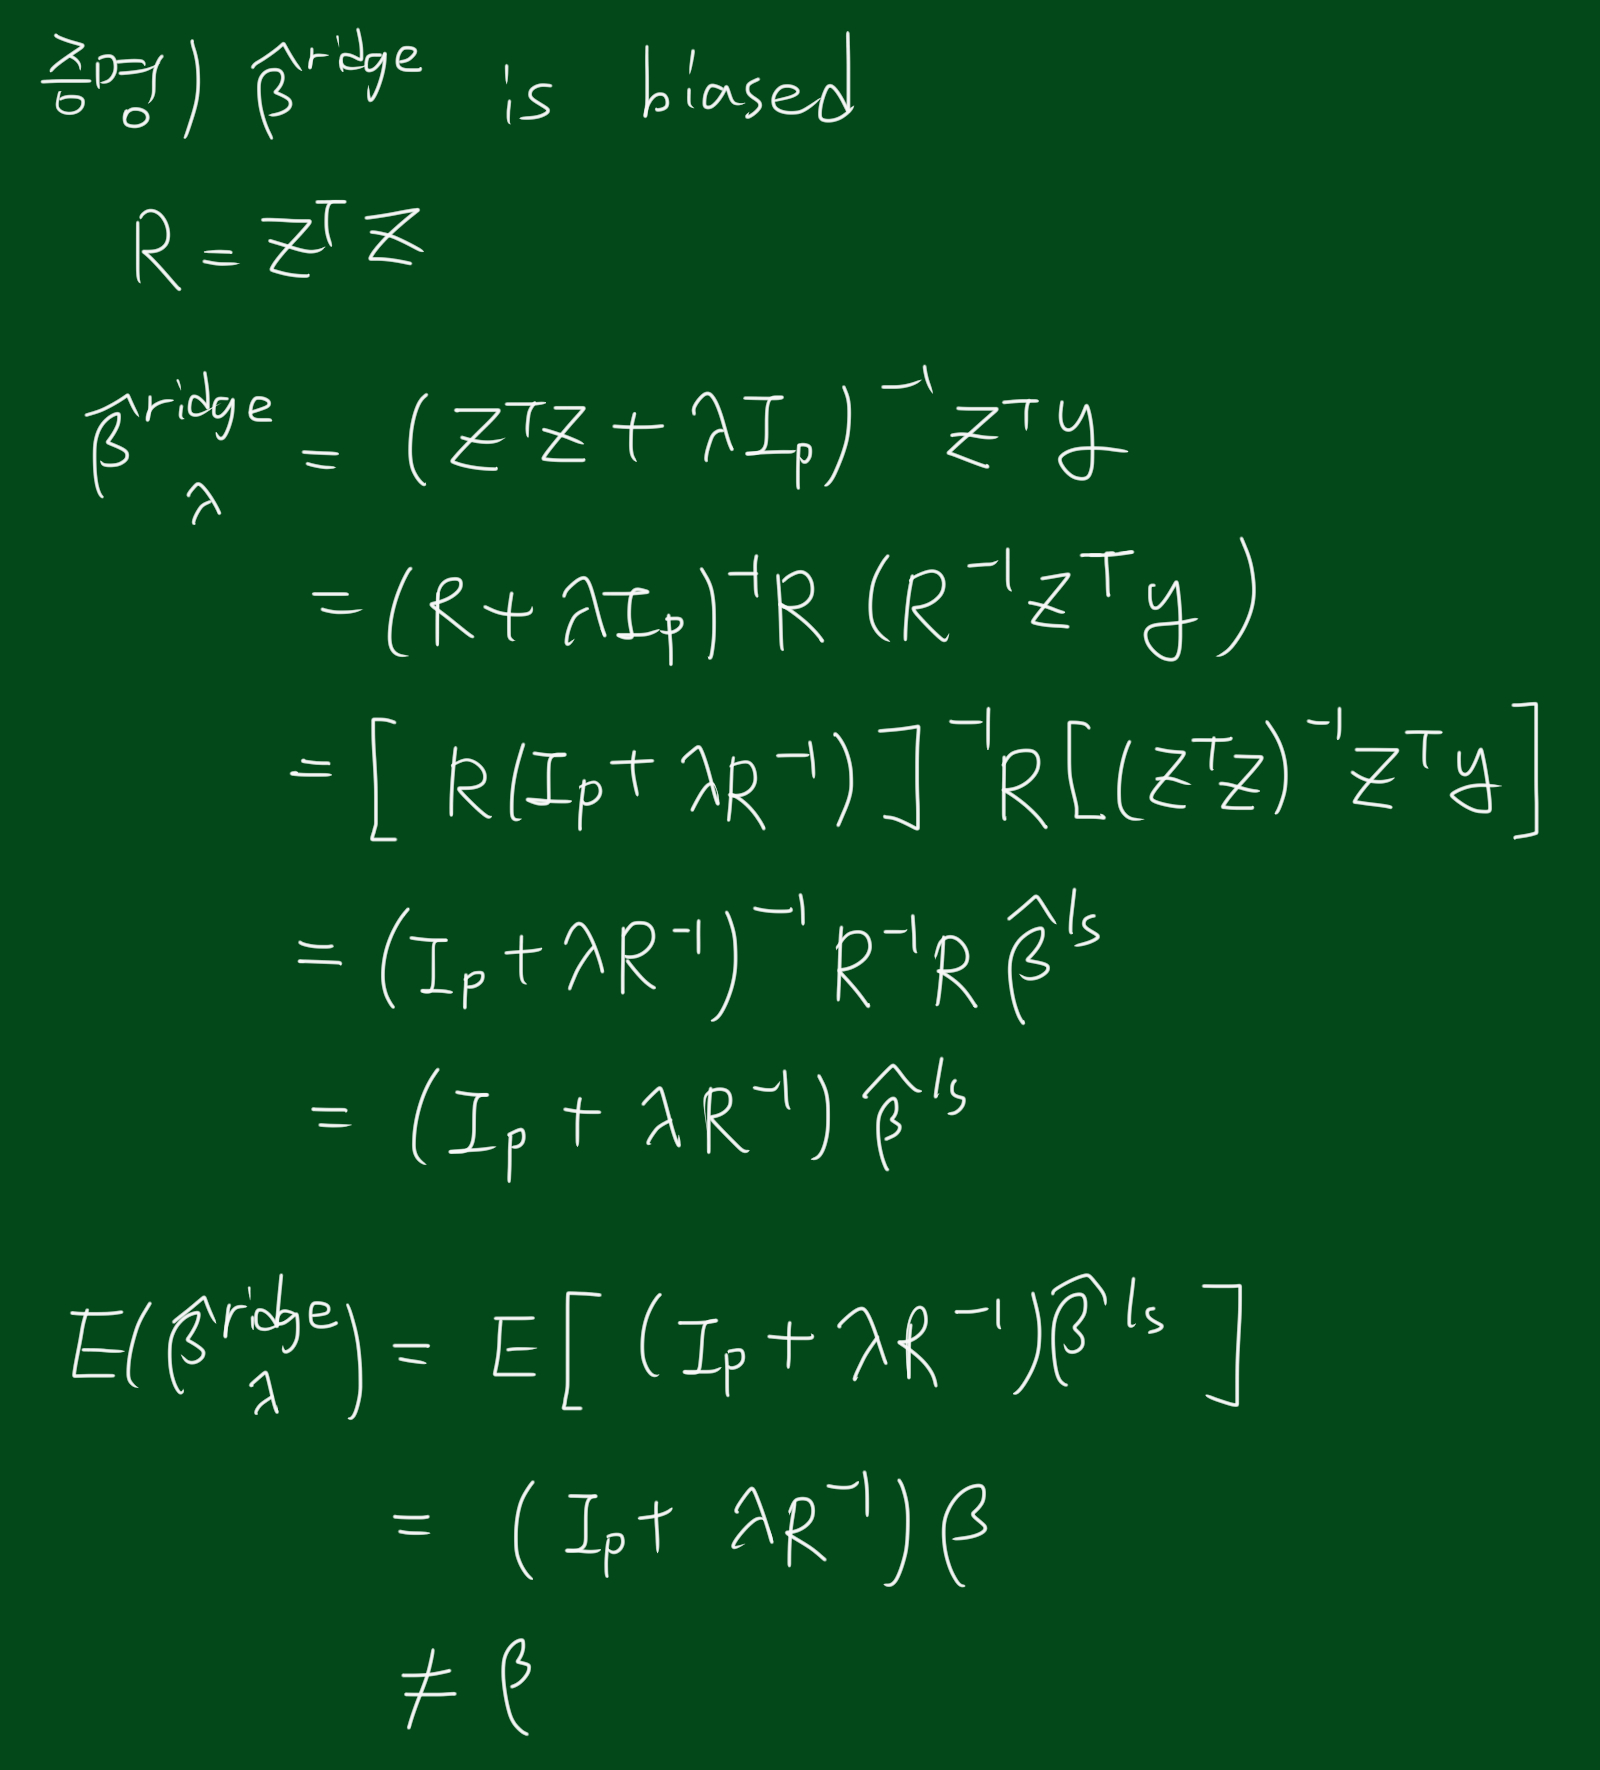 증명) β̂^ridge is biased
R = Z^T Z
β̂^ridge_λ = (Z^T Z + λI_p)^-1 Z^T y
= (R + λI_p)^-1 R (R^-1 Z^T y)
= [R(I_p + λR^-1)]^-1 R[(Z^T Z)^-1 Z^T y]
= (I_p + λR^-1)^-1 R^-1 R β̂^ls
= (I_p + λR^-1) β̂^ls
E(β̂^ridge_λ) = E[(I_p + λR^-1)β̂^ls]
= (I_p + λR^-1)β
≠ β